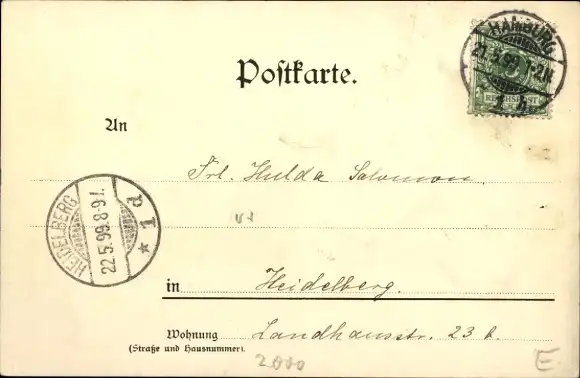 HAMBURG
21.5.99. 1-2N.
1 h.
REICHSPOST
Postkarte.
An
Frl. Hulda Salomon
HEIDELBERG
22.5.99.8-9V.
p 1 *
in Heidelberg.
Wohnung Landhausstr. 23 b.
(Straße und Hausnummer).
2000
E